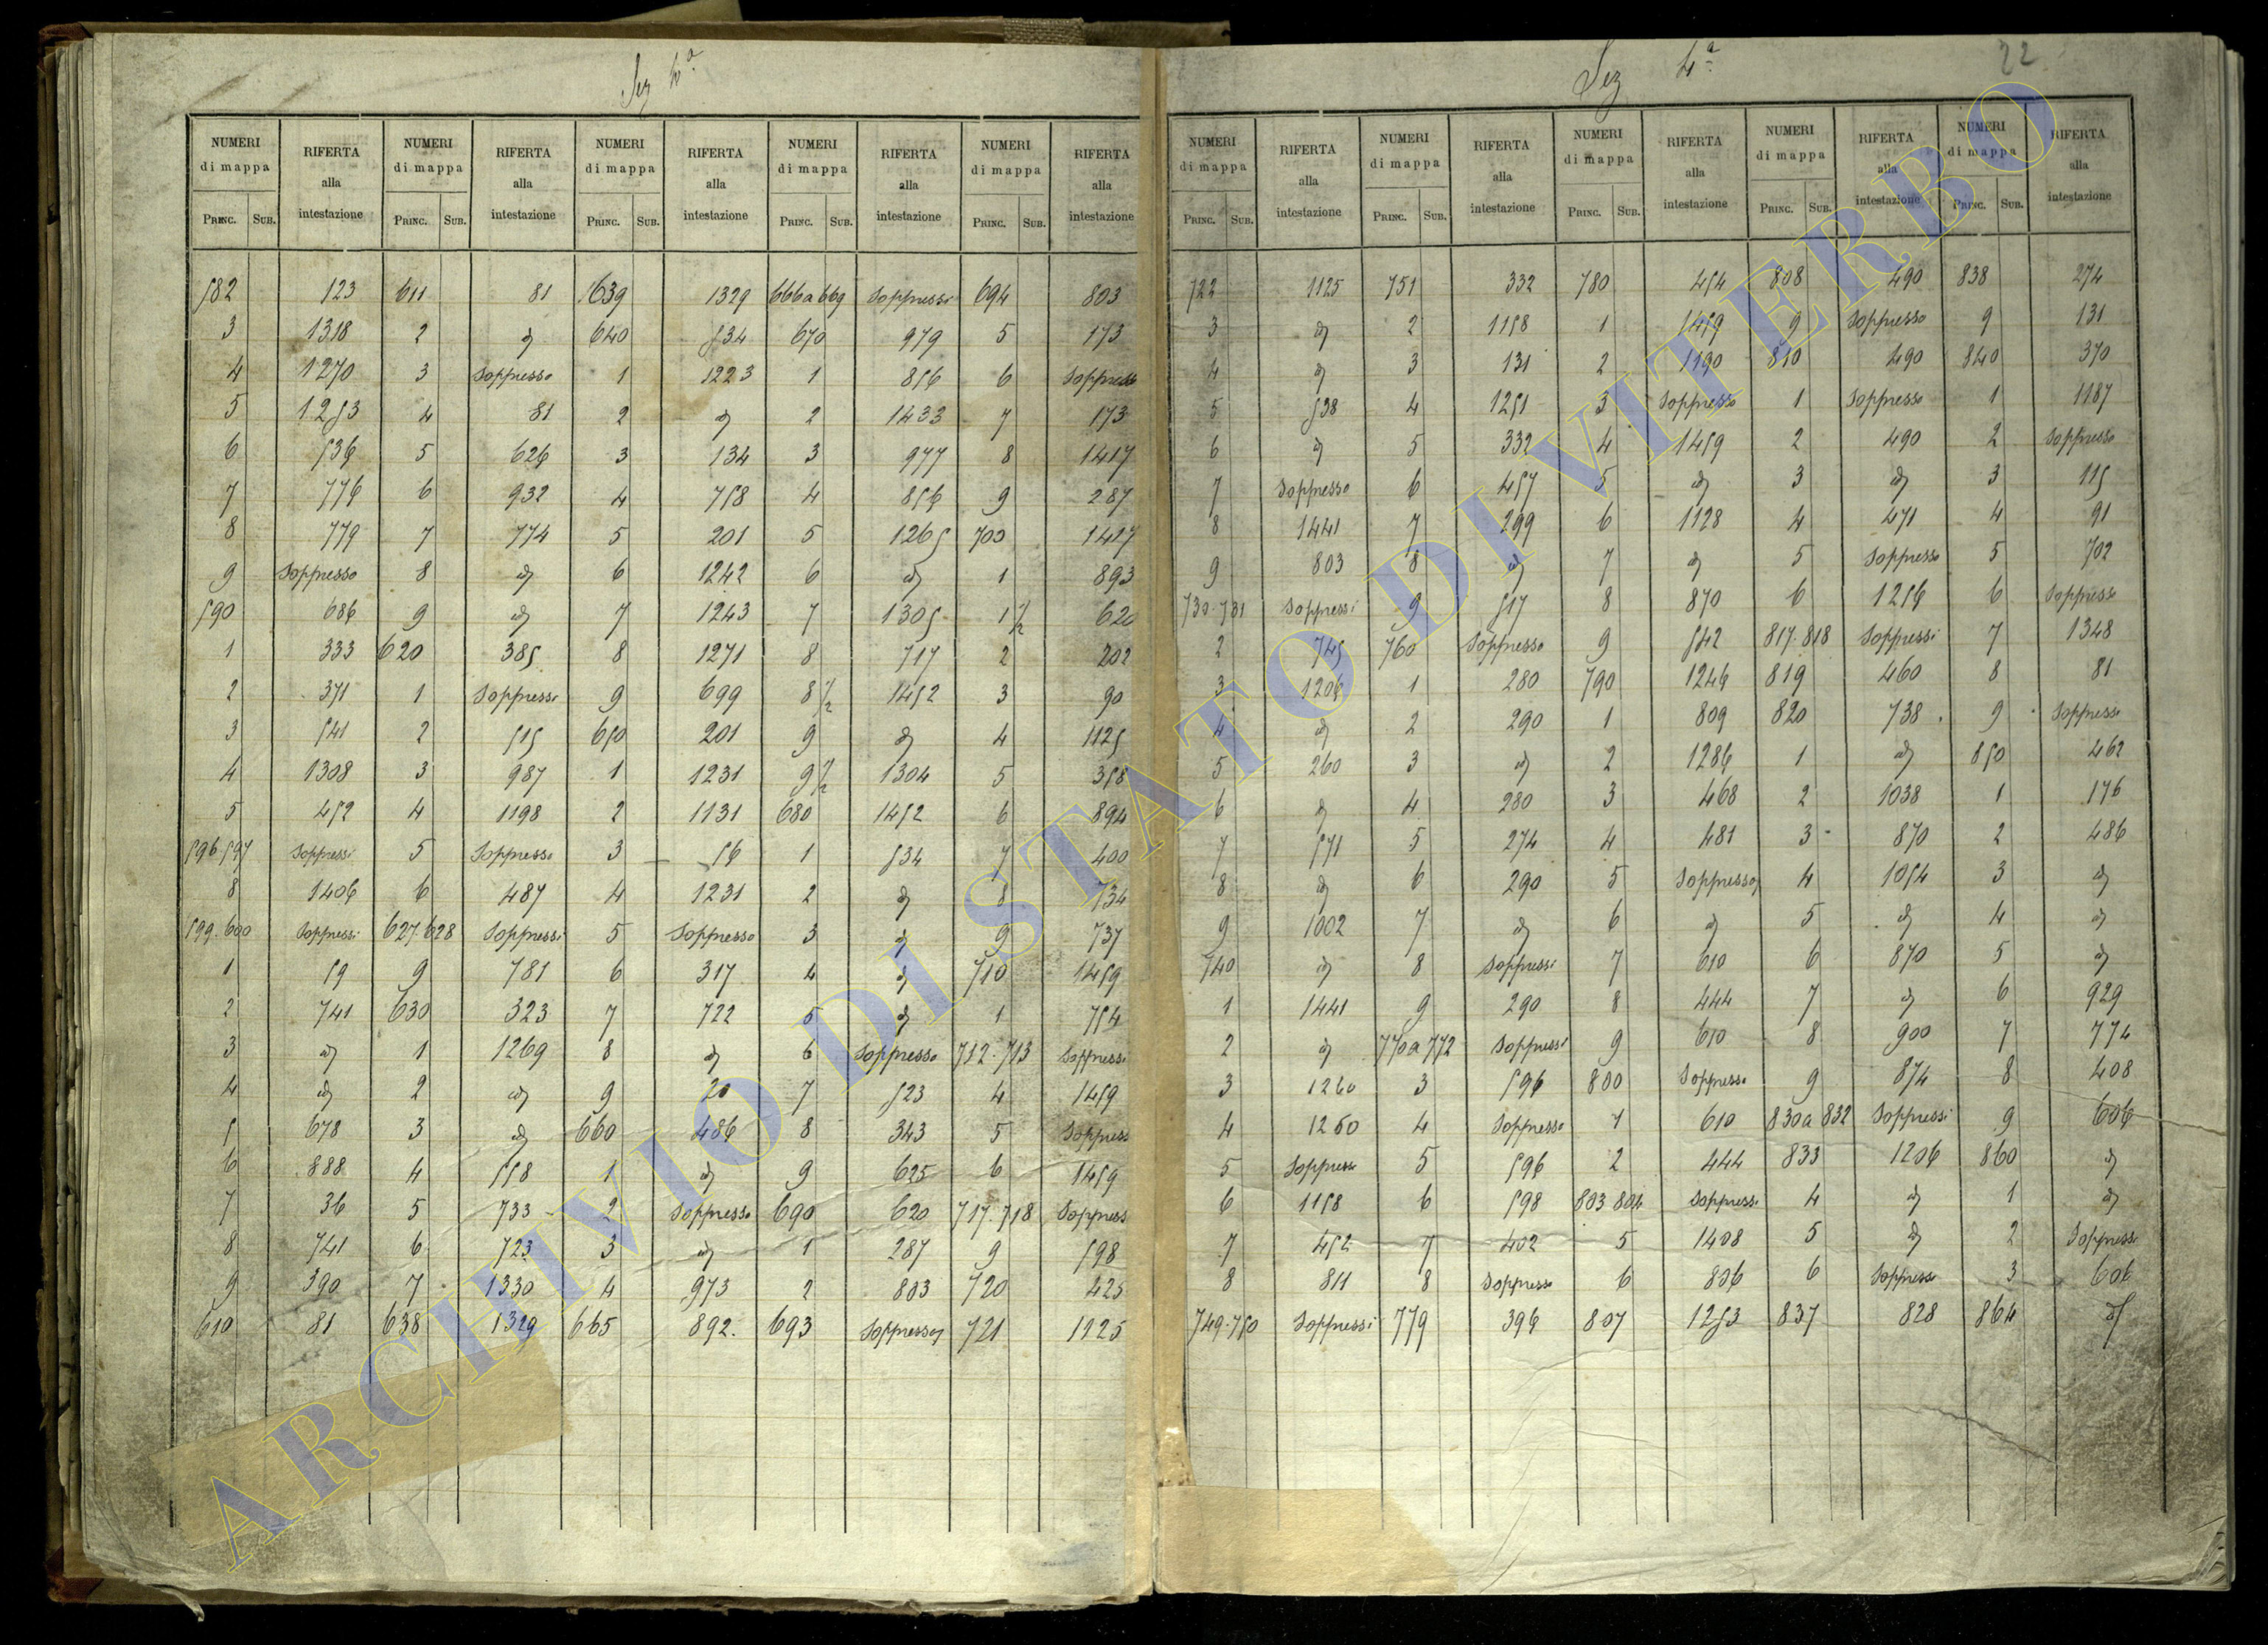 Sez 4ª
NUMERI di mappa RIFERTA alla intestazione NUMERI di mappa RIFERTA alla intestazione NUMERI di mappa RIFERTA alla intestazione NUMERI di mappa RIFERTA alla intestazione NUMERI di mappa RIFERTA alla intestazione
PRINC. SUB. PRINC. SUB. PRINC. SUB. PRINC. SUB. PRINC. SUB.
582 123 611 81 639 1329 666 a 669 Soppressi 694 803
3 1318 2 id 640 534 670 979 5 173
4 1270 3 Soppresso 1 1223 1 856 6 Soppresso
5 1253 4 81 2 id 2 1433 7 173
6 536 5 626 3 134 3 977 8 1417
7 776 6 932 4 758 4 856 9 287
8 779 7 774 5 201 5 1265 700 1417
9 Soppresso 8 id 6 1242 6 id 1 893
590 686 9 id 7 1243 7 1305 1½ 620
1 333 620 385 8 1271 8 717 2 202
2 371 1 Soppresso 9 699 8½ 1452 3 90
3 541 2 515 650 201 9 id 4 1125
4 1308 3 987 1 1231 9½ 1304 5 358
5 452 4 1198 2 1131 680 1452 6 894
596 597 Soppressi 5 Soppresso 3 56 1 534 7 400
8 1406 6 487 4 1231 2 id 8 734
599.600 Soppressi 627.628 Soppressi 5 Soppresso 3 id 9 737
1 59 9 781 6 317 4 id 710 1459
2 741 630 323 7 722 5 id 1 754
3 id 1 1269 8 id 6 Soppresso 712.713 Soppressi
4 id 2 id 9 20 7 523 4 1459
5 678 3 id 660 486 8 343 5 Soppress
6 888 4 558 1 id 9 625 6 1459
7 36 5 733 2 Soppresso 690 620 717.718 Soppress
8 741 6 723 3 id 1 287 9 598
9 390 7 1330 4 973 2 803 720 425
610 81 638 1329 665 892. 693 Soppresso 721 1125
Sez 4ª 22
NUMERI di mappa RIFERTA alla intestazione NUMERI di mappa RIFERTA alla intestazione NUMERI di mappa RIFERTA alla intestazione NUMERI di mappa RIFERTA alla intestazione NUMERI di mappa RIFERTA alla intestazione
PRINC. SUB. PRINC. SUB. PRINC. SUB. PRINC. SUB. PRINC. SUB.
722 1125 751 332 780 454 808 490 838 274
3 id 2 1158 1 1459 9 Soppresso 9 131
4 id 3 131 2 1190 810 490 840 370
5 538 4 1251 3 Soppresso 1 Soppresso 1 1187
6 id 5 332 4 1459 2 490 2 Soppresso
7 Soppresso 6 457 5 id 3 id 3 115
8 1441 7 299 6 1128 4 471 4 91
9 803 8 id 7 id 5 Soppresso 5 702
730.731 Soppressi 9 517 8 870 6 1256 6 Soppresso
2 745 760 Soppresso 9 542 817.818 Soppressi 7 1348
3 1206 1 280 790 1246 819 460 8 81
4 id 2 290 1 809 820 738 9 Soppresso
5 260 3 id 2 1286 1 id 850 462
6 id 4 280 3 468 2 1038 1 176
7 571 5 274 4 481 3 870 2 486
8 id 6 290 5 Soppresso 4 1054 3 id
9 1002 7 id 6 id 5 id 4 id
740 id 8 Soppressi 7 610 6 870 5 id
1 1441 9 290 8 444 7 id 6 929
2 id 770 a 772 Soppressi 9 610 8 900 7 774
3 1260 3 596 800 Soppresso 9 874 8 408
4 1260 4 Soppresso 1 610 830 a 832 Soppressi 9 606
5 Soppresso 5 596 2 444 833 1206 860 id
6 1158 6 598 803 804 Soppressi 4 id 1 id
7 452 7 402 5 1408 5 id 2 Soppresso
8 811 8 Soppresso 6 806 6 Soppresso 3 606
749.750 Soppressi 779 396 807 1253 837 828 864 id
ARCHIVIO DI STATO DI VITERBO